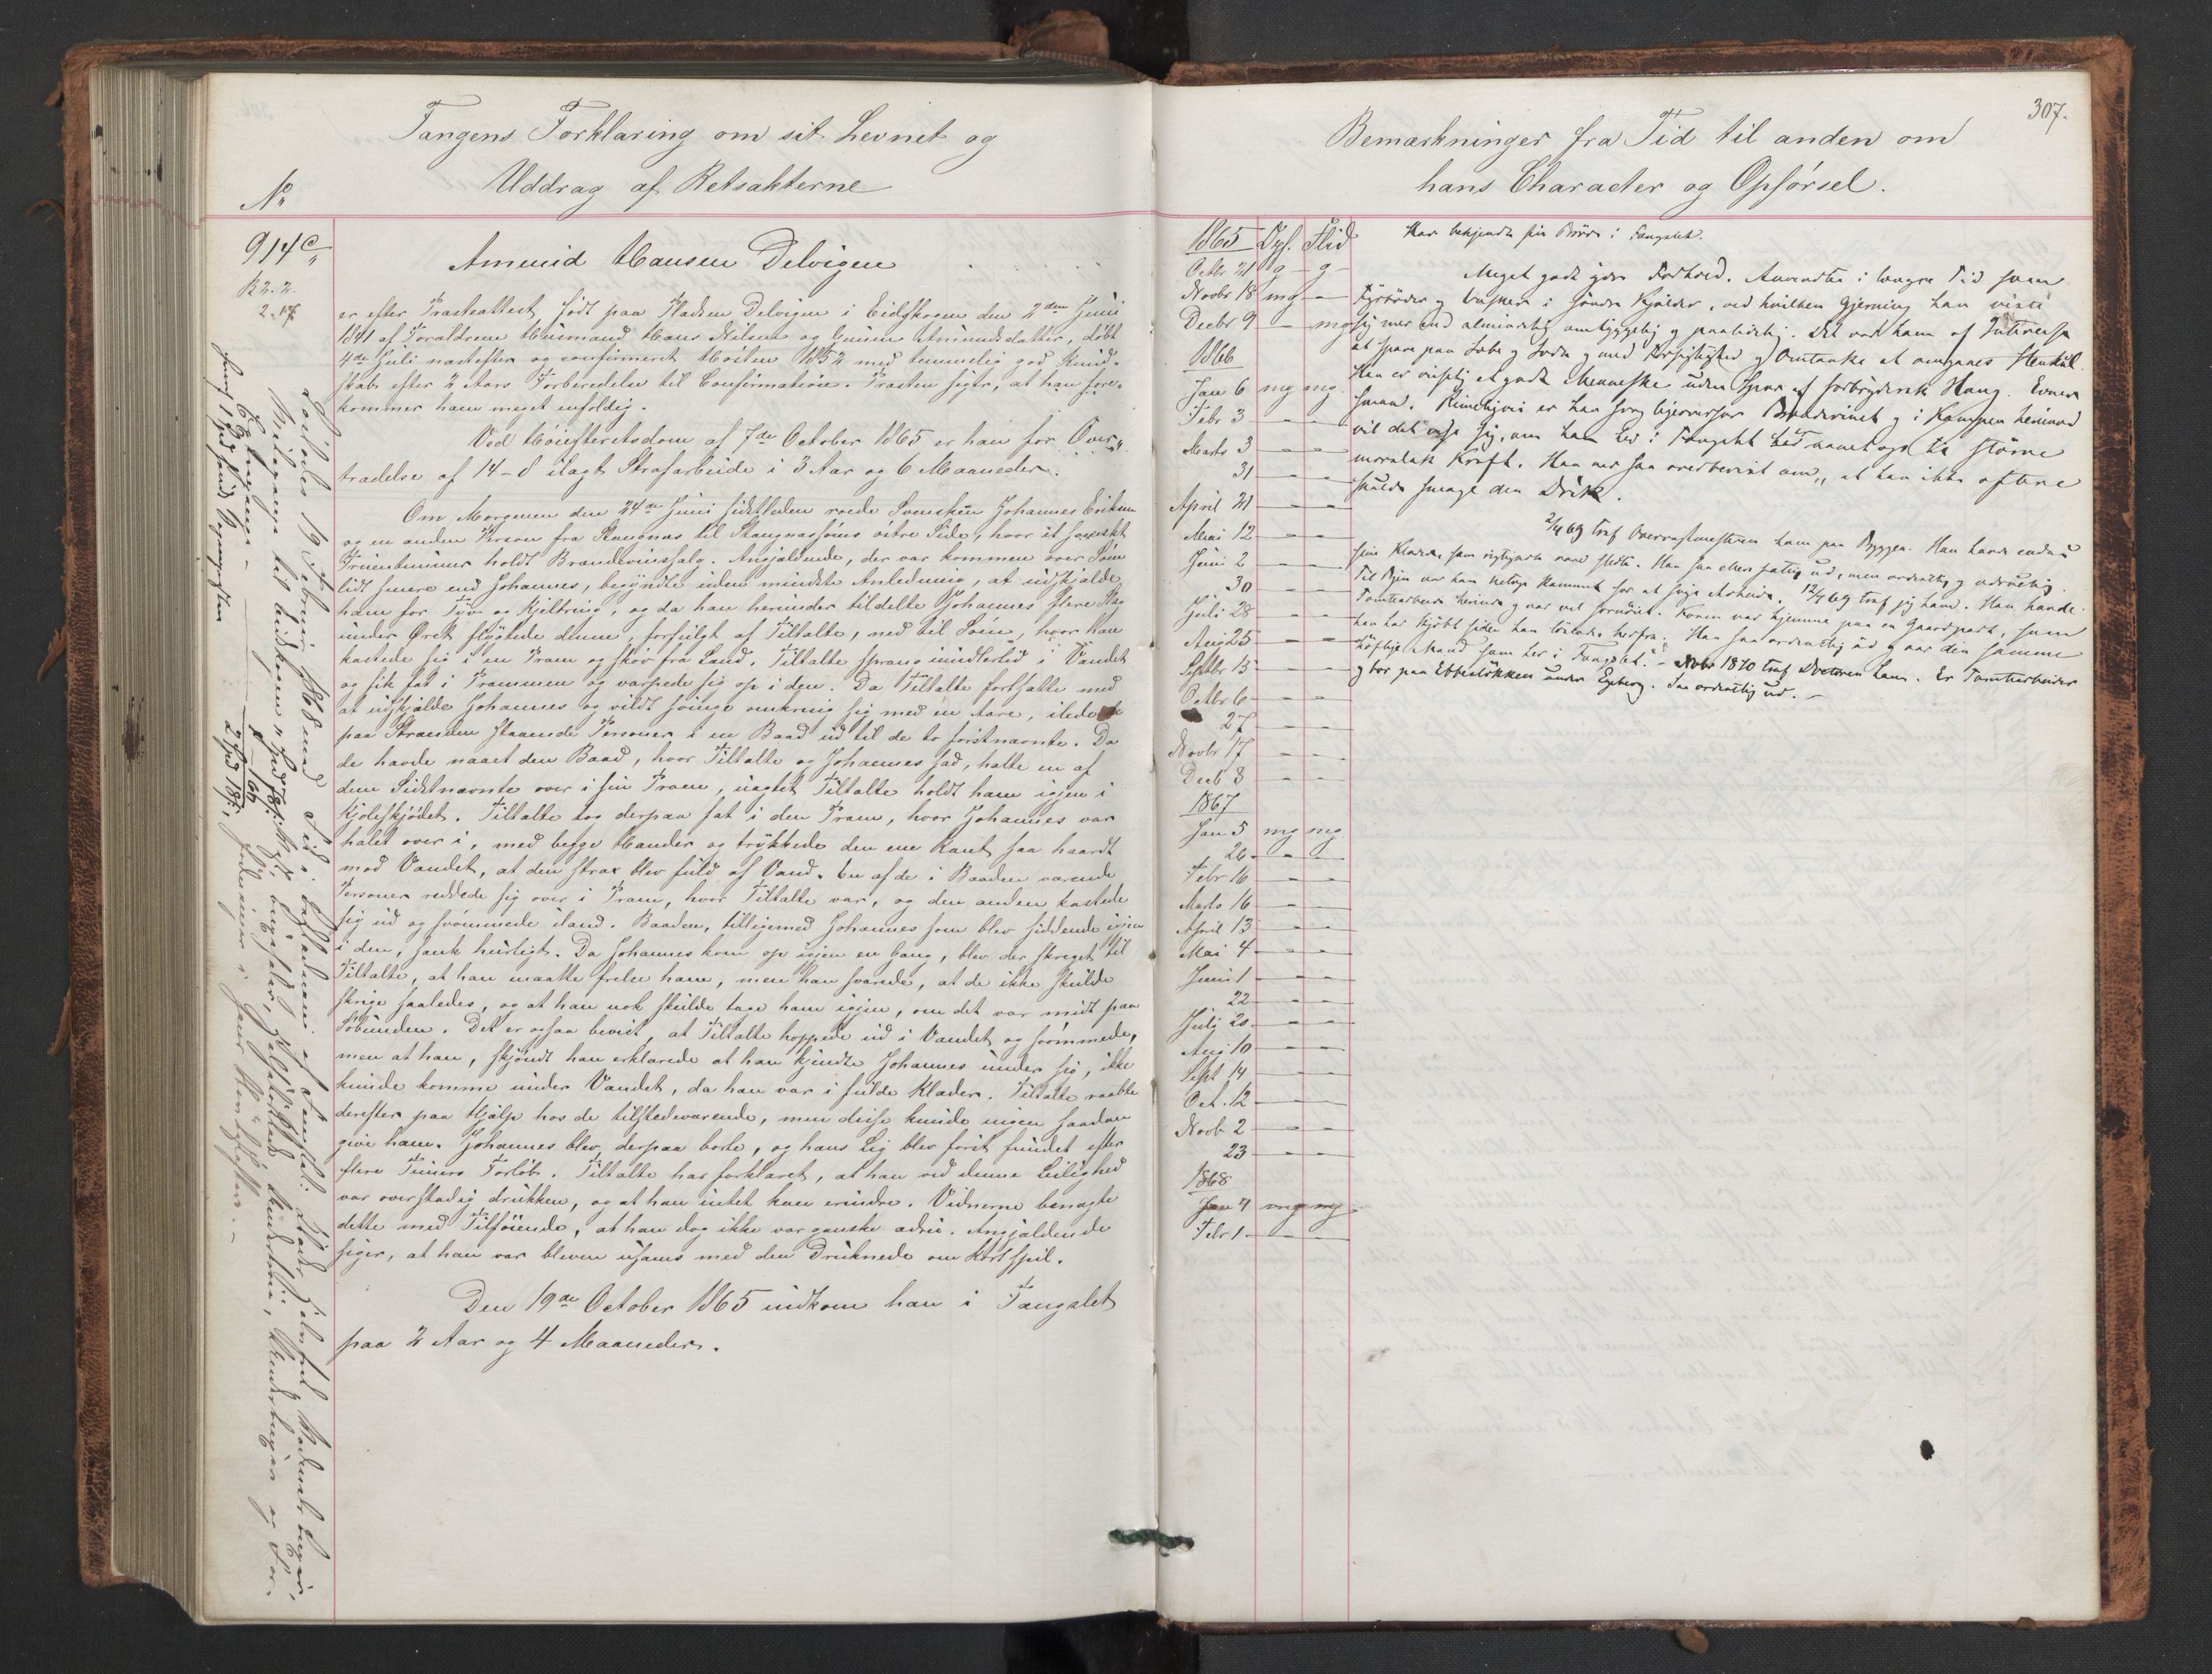 Fangens Forklaring om sit Levnet og
Uddrag af Retsakterne
No
914 C
B 2. 2.
2. 17
Amund Hansen Delvigen
er efter Præsteattest født paa Pladsen Delvigen i Eidskogen den 2den Juni
1841 af Forældrene Huusmand Hans Nilsen og Amundsdatter, døbt
4de Juli næstefter og confirmeret Høsten 1852 med temmelig god Kund-
skab efter 2 Aars Forberedelse til Confirmation. Præsten siger, at han fore-
kommer ham meget enfoldig.
Ved Høiesteretsdom af 7de October 1865 er han for Over-
trædelse af 14-8 ilagt Strafarbeide i 3 Aar og 6 Maaneder.
Om Morgenen den 24de Juni sidstleden roede Svensken Johannes Eriksen
og en anden Person fra Stangnæs til Stangnæssøens østre Side, hvor et svenskt
Fruentimmer holdt Brændeviinssalg. Angjældende, der var kommen over Søen
lidt senere end Johannes, begyndte uden mindste Anledning, at udskjælde
ham for Tyv og Kjeltring, og da han herunder tildelte Johannes flere Slag
under Øret flygtede denne, forfulgt af Tiltalte, ned til Søen, hvor han
kastede sig i en Pram og skjøv fra Land. Tiltalte sprang imidlertid i Vandet
og fik fat i Prammen og varpede sig op i den. Da Tiltalte fortsatte med
at udskjælde Johannes og vildt svinge omkring sig med en Aare, ilede
paa Stranden staaende Personer i en Baad ud til de to førstnævnte. Da
de havde naaet den Baad, hvor Tiltalte og Johannes sad, halte en af
dem Sidstnævnte over i sin Pram, uagtet Tiltalte holdt ham igjen i
Kjoleskjødet. Tiltalte tog derpaa fat i den Pram, hvor Johannes var
halet over i, med begge Hænder og trykkede den ene Kant saa haardt
mod Vandet, at den strax blev fuld af Vand. En af de i Baaden værende
Personer reddede sig over i Pram, hvor Tiltalte var, og den anden kastede
sig ud og svømmede iland. Baaden, tilligemed Johannes som blev siddende igjen
i den, sank hurtigt. Da Johannes kom op igjen en Gang, blev der skreget til
Tiltalte, at han maatte frelse ham, men han svarede, at de ikke skulde
skrige saaledes, og at han nok skulde tage ham igjen, om det var midt paa
Søbunden. Det er ogsaa bevist, at Tiltalte hoppede ud i Vandet og svømmede,
men at han, skjøndt han erklærede at han kjendte Johannes under sig, ikke
kunde komme under Vandet, da han var i fulde Klæder. Tiltalte raabte
derefter paa Hjælp hos de tilstedeværende, men disse kunde ingen saadan
give ham. Johannes blev derpaa borte, og hans Lig blev først fundet efter
flere Timers Forløb. Tiltalte har forklaret, at han ved denne Leilighed
var overstadig drukken, og at han intet kan erindre. Vidnerne benægte
dette med Tilføiende, at han dog ikke var ganske ædru. Angjældende
siger, at han var bleven usams med den Druknede om Kortspil.
Den 19de October 1865 indkom han i Fængslet
paa 2 Aar og 4 Maaneder.
Løslades 19 Februar 1868 med
Bemærkninger fra Tid til anden om
hans Character og Opførsel.
307.
1865 Opf. Flid
Octbr 21 g - g -
Novbr 18 mg -
Decbr 9 - mg
1866
Jan 6 mg mg
Febr 3 - -
Marts 3 - -
31 - -
April 21 - -
Mai 12 - -
Juni 2 - -
30 - -
Juli 28 - -
Aug 25 - -
Septbr 15 - -
Octbr 6 - -
27 - -
Novbr 17 - -
Decb 8 - -
1867
Jan 5 mg mg
26 - -
Febr 16 - -
Marts 16 - -
April 13 - -
Mai 4 - -
Juni 1 - -
22 - -
Juli 20 - -
Aug 10 - -
Sept 14 - -
Oct. 12 - -
Novb 2 - -
23 - -
1868
Jan 4 mg mg
Febr 1 - -
Har bekjendt sin Brøde i Fængslet.
Meget godt Forhold. Anvendtes i længre Tid som
Fyrbøder og i søndre Kjælder, ved hvilken Gjerning han viste
sig mer end almindelig omhyggelig og paalidelig. Det var ham af Interesse
at spare paa og med Forsigtighed og Omtanke at omgaaes
Han er vistnok et godt Menneske uden Spor af forbrydersk Hang. Evner
smaa. Rimeligvis er han Brændevinet og i Kampen herimod
vil det vise sig, om han her i Fængslet har større
moralsk Kraft. Han var saa overbevist om, at han ikke oftere
skulde smage den Drik.
2/4 69 traf Overvagtmesteren ham paa Bryggen. Han havde endnu
sine Klæder, som vare slidte. Han saa ellers fattig ud, men ordentlig og ædruelig.
Til Byen var han netop kommet for at søge Arbeide. 12/7 69 traf jeg ham. Han havde
Tomtearbeide herinde og var vel fornøiet. Konen var hjemme paa en Gaardpart, som
han har kjøbt siden han løslodes herfra. Han saa ordentlig ud og var den samme
høflige Mand som her i Fængslet. - Novbr 1870 traf Doctoren ham. Er Tomtearbeider
og bor paa Ebbeløkken under Egeberg. Saa ordentlig ud. -